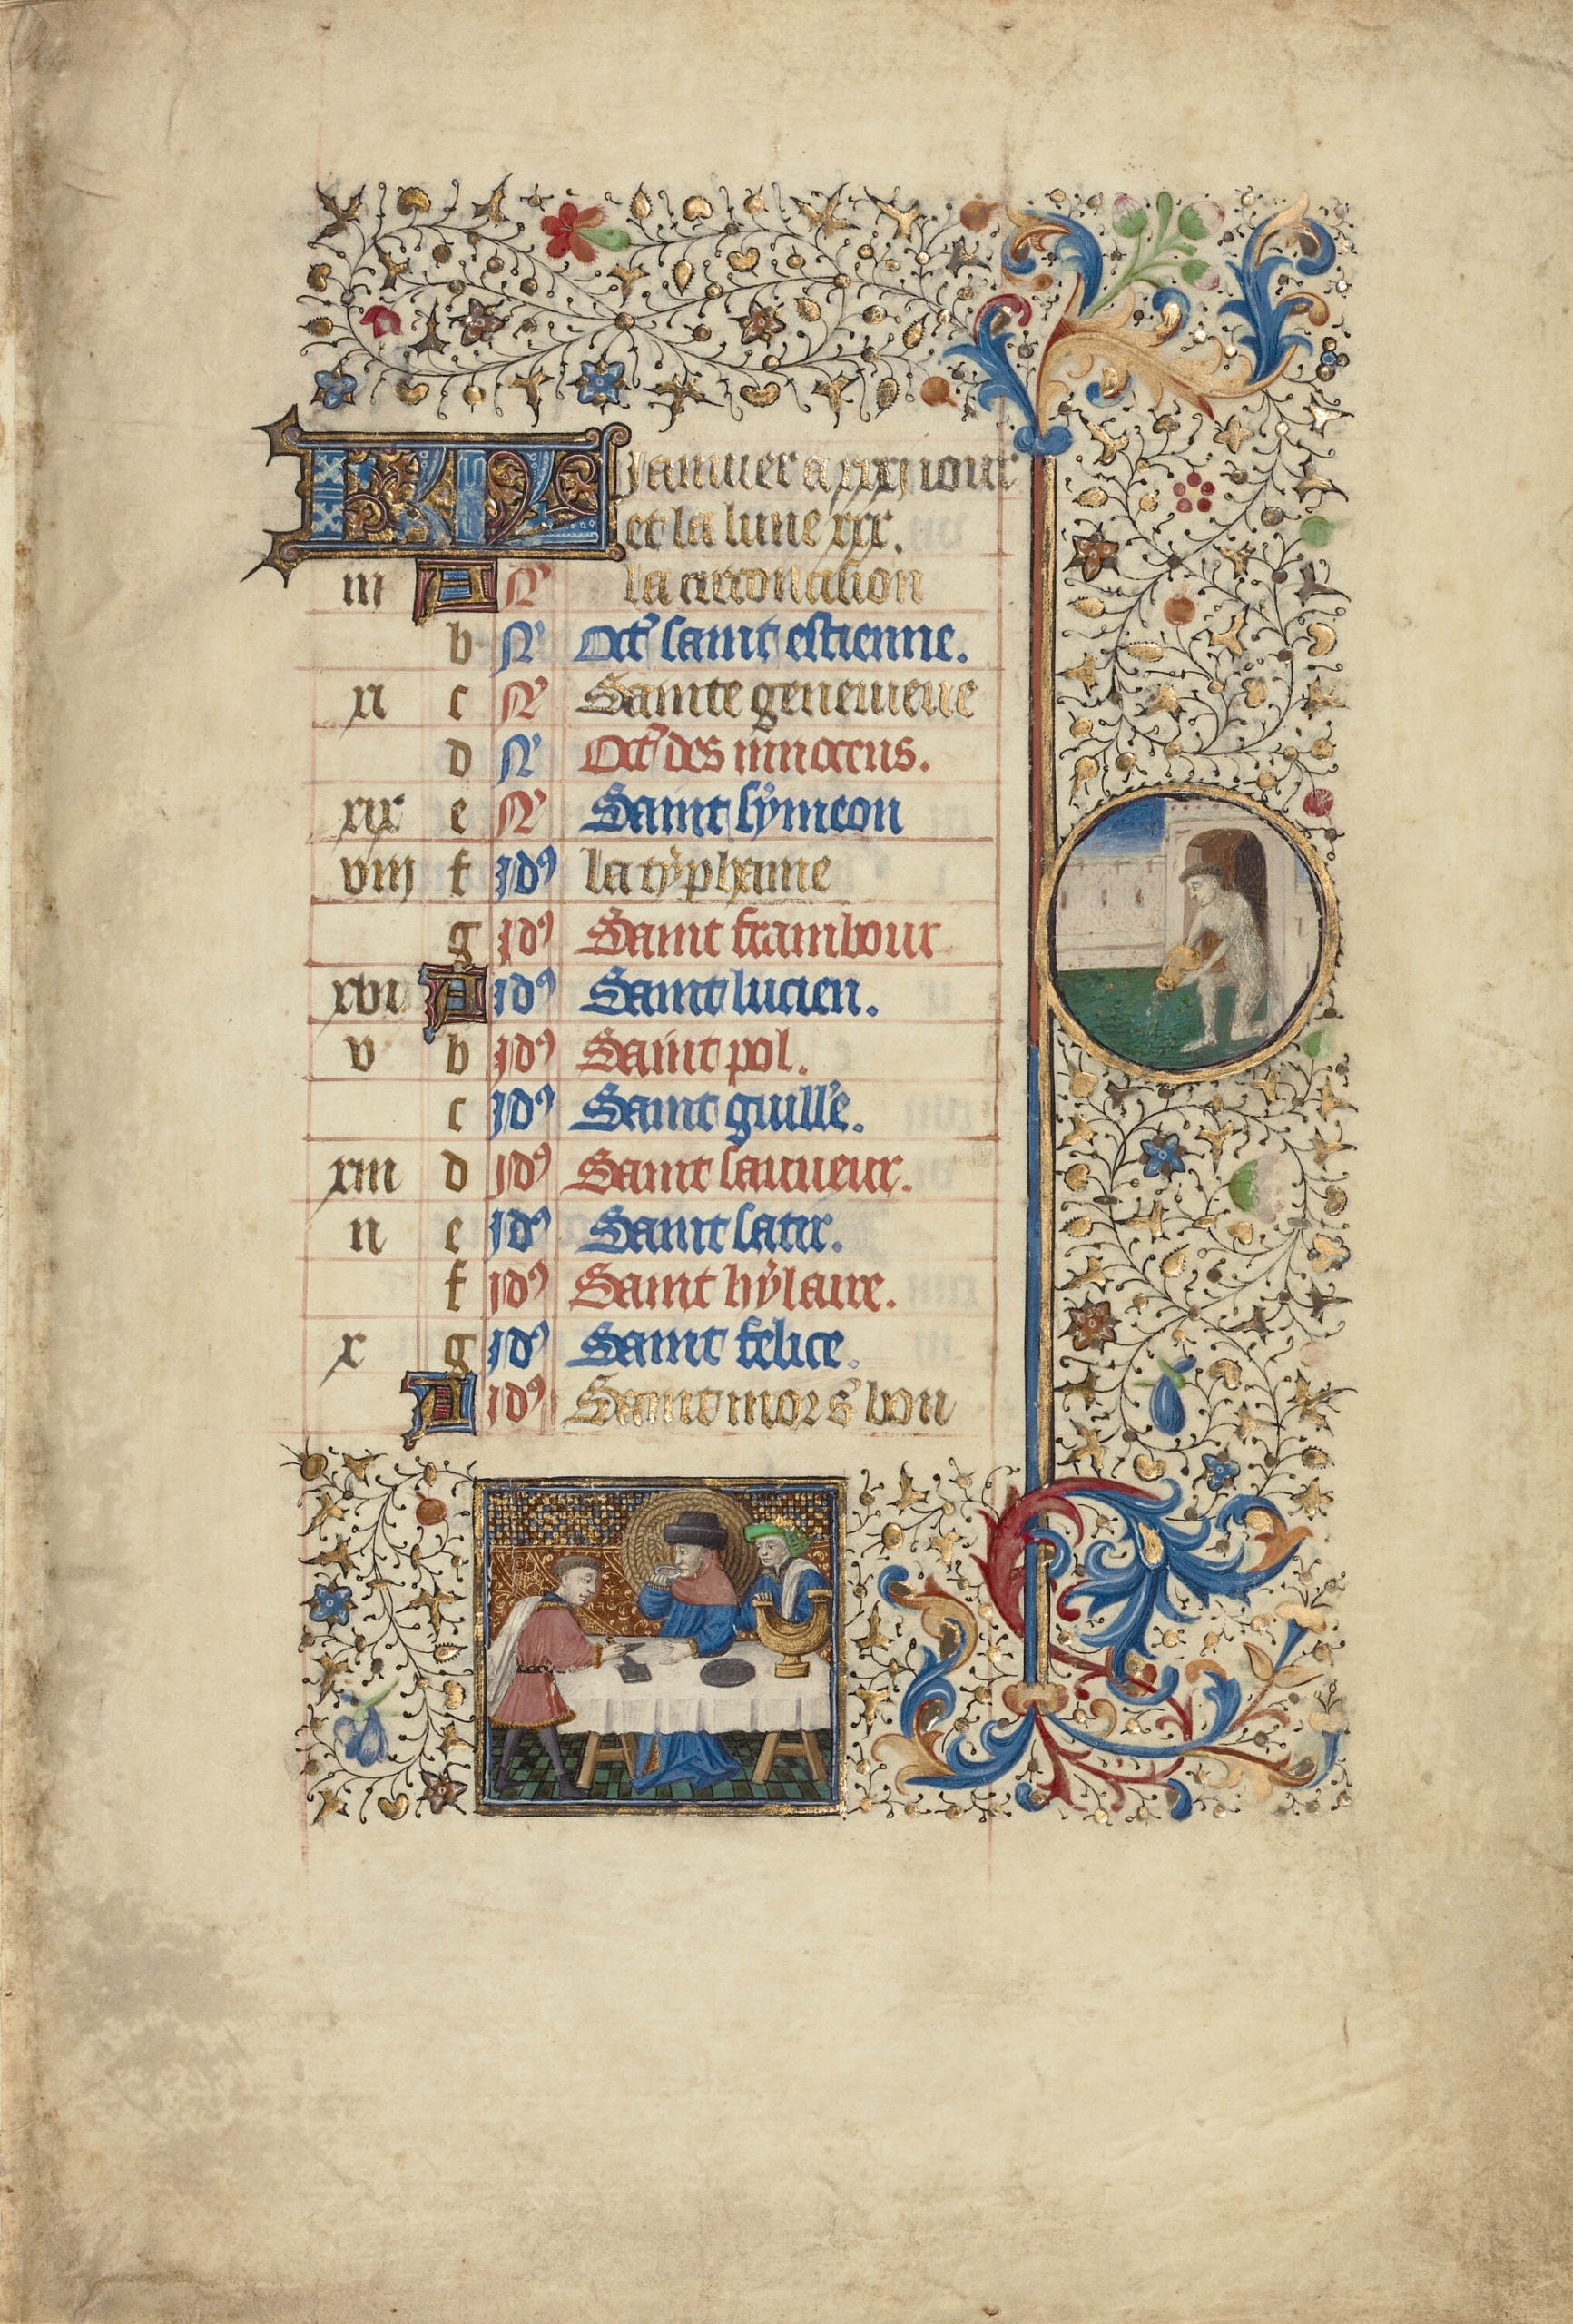 KL Januier a xxxj iour
et la lune xxx.
iii A N la circoncision
b N Oct' saint estienne.
xi c N Sainte geneuieue
d N Oct' des innocens.
xix e N Saint symeon
viii f Id9 la typhaine
g Id9 Saint frambour
xvi A Id9 Saint lucien.
v b Id9 Saint pol.
c Id9 Saint guill'e.
xiii d Id9 Saint sauueur.
ii e Id9 Saint satir.
f Id9 Saint hylaire.
x g Id9 Saint felice.
A Id9 Saint mor s' bon